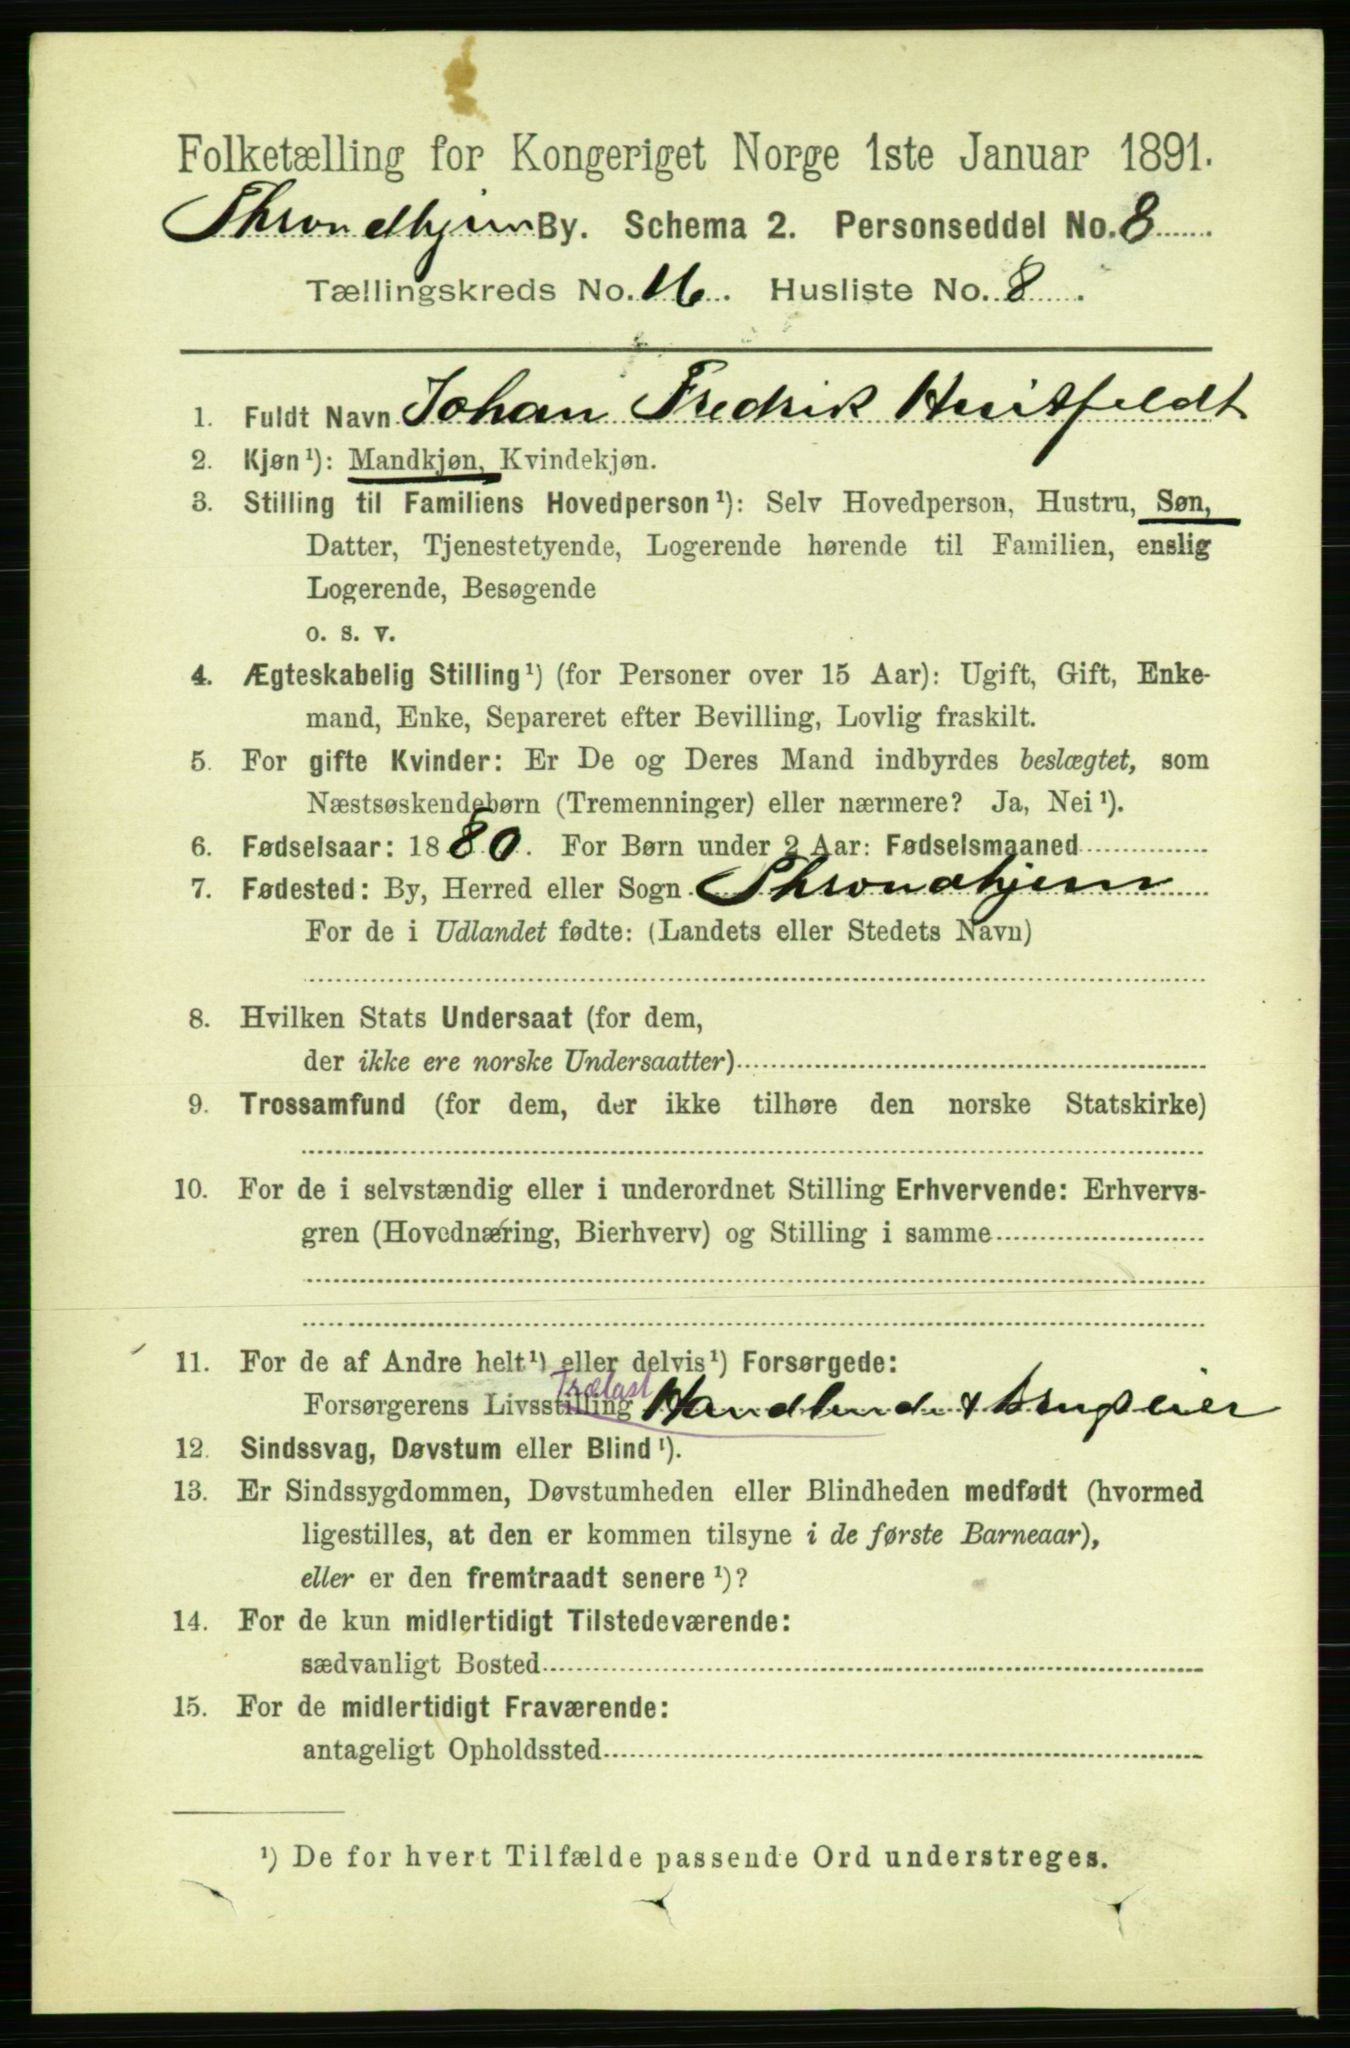 Folketælling for Kongeriget Norge 1ste Januar 1891.
Throndhjem By. Schema 2. Personseddel No. 8
Tællingskreds No. 16. Husliste No. 8.
1. Fuldt Navn Johan Fredrik Huitfeldt
2. Kjøn¹): Mandkjøn, Kvindekjøn.
3. Stilling til Familiens Hovedperson¹): Selv Hovedperson, Hustru, Søn,
Datter, Tjenestetyende, Logerende hørende til Familien, enslig
Logerende, Besøgende
o. s. v.
4. Ægteskabelig Stilling¹) (for Personer over 15 Aar): Ugift, Gift, Enke-
mand, Enke, Separeret efter Bevilling, Lovlig fraskilt.
5. For gifte Kvinder: Er De og Deres Mand indbyrdes beslægtet, som
Næstsøskendebørn (Tremenninger) eller nærmere? Ja, Nei¹).
6. Fødselsaar: 1880. For Børn under 2 Aar: Fødselsmaaned
7. Fødested: By, Herred eller Sogn Throndhjem
For de i Udlandet fødte: (Landets eller Stedets Navn)
8. Hvilken Stats Undersaat (for dem,
der ikke ere norske Undersaatter)
9. Trossamfund (for dem, der ikke tilhøre den norske Statskirke)
10. For de i selvstændig eller i underordnet Stilling Erhvervende: Erhvervs-
gren (Hovednæring, Bierhverv) og Stilling i samme
11. For de af Andre helt¹) eller delvis¹) Forsørgede:
Trælast
Forsørgerens Livsstilling Handlende & brugseier
12. Sindssvag, Døvstum eller Blind¹).
13. Er Sindssygdommen, Døvstumheden eller Blindheden medfødt (hvormed
ligestilles, at den er kommen tilsyne i de første Barneaar),
eller er den fremtraadt senere¹)?
14. For de kun midlertidigt Tilstedeværende:
sædvanligt Bosted
15. For de midlertidigt Fraværende:
antageligt Opholdssted
¹) De for hvert Tilfælde passende Ord understreges.